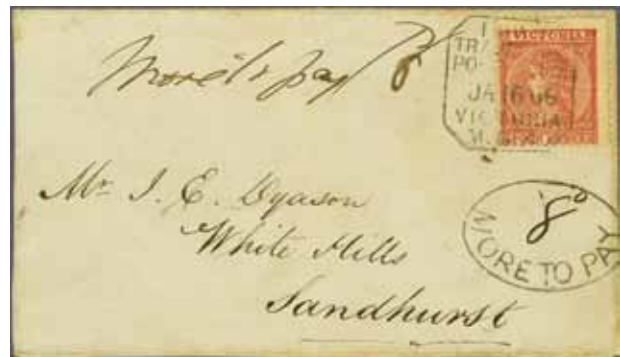 More to pay 8
VICTORIA
TRA
PO
JA 16 66
VICTORIA
Mr. J. E. Dyason
White Hills
Sandhurst
8
MORE TO PAY